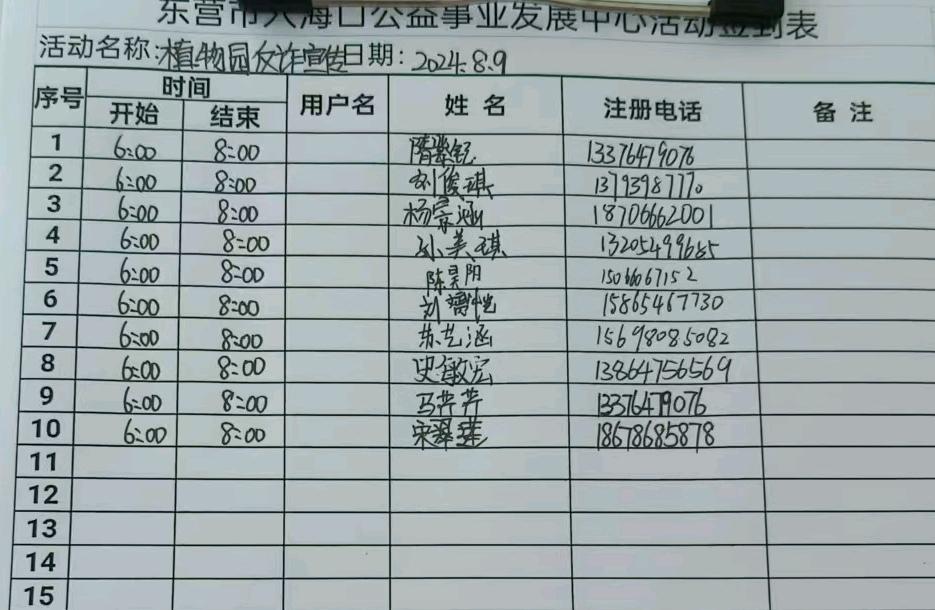 东营市入海口公益事业发展中心活动签到表
活动名称:植物园反诈宣传日期:2024.8.9
序号 时间 用户名 姓名 注册电话 备注
开始 结束
1 6:00 8:00 隋紫钰 13376479076
2 6:00 8:00 刘俊琪 13793987770
3 6:00 8:00 杨宗涵 18706662001
4 6:00 8:00 孙美琪 13205499685
5 6:00 8:00 陈昊阳 15066067152
6 6:00 8:00 刘 15865467730
7 6:00 8:00 苏艺涵 15698085082
8 6:00 8:00 史敏宏 13864756569
9 6:00 8:00 马芹芹 13376479076
10 6:00 8:00 宋 18678685878
11
12
13
14
15